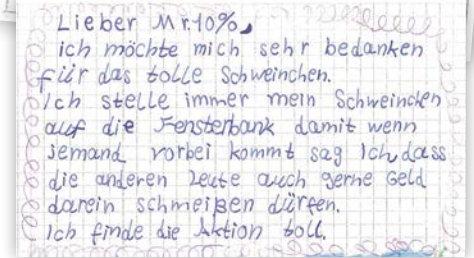 Lieber Mr.10%,
ich möchte mich sehr bedanken
für das tolle Schweinchen.
Ich stelle immer mein Schweinchen
auf die Fensterbank damit wenn
jemand vorbei kommt sag Ich dass
die anderen Leute auch gerne Geld
darein schmeißen dürfen.
Ich finde die Aktion toll.